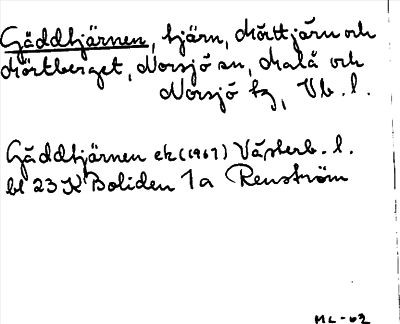 Gäddtjärnen, tjärn, Mörttjärn och
Mörtberget, Norsjö sn, Malå och
Norsjö tg, Vb. l.
Gäddtjärnen ek (1967) Västerb. l.
bl 23 K Boliden 1a Renström
ML-62